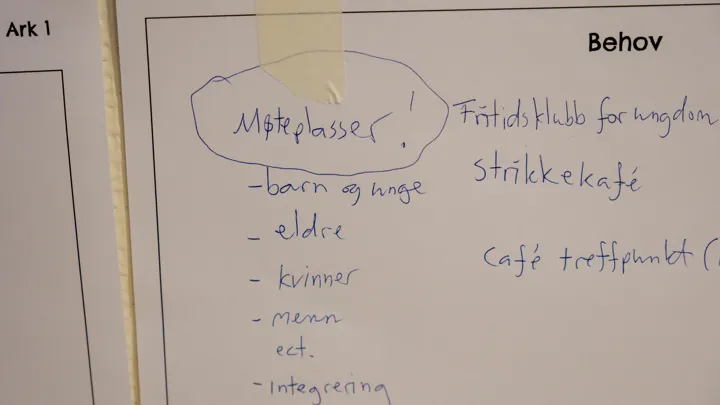 Ark 1
Behov
Møteplasser!
- barn og unge
- eldre
- kvinner
- menn
ect.
- integrering
Fritidsklubb for ungdom
Strikkekafé
Café treffpunkt (